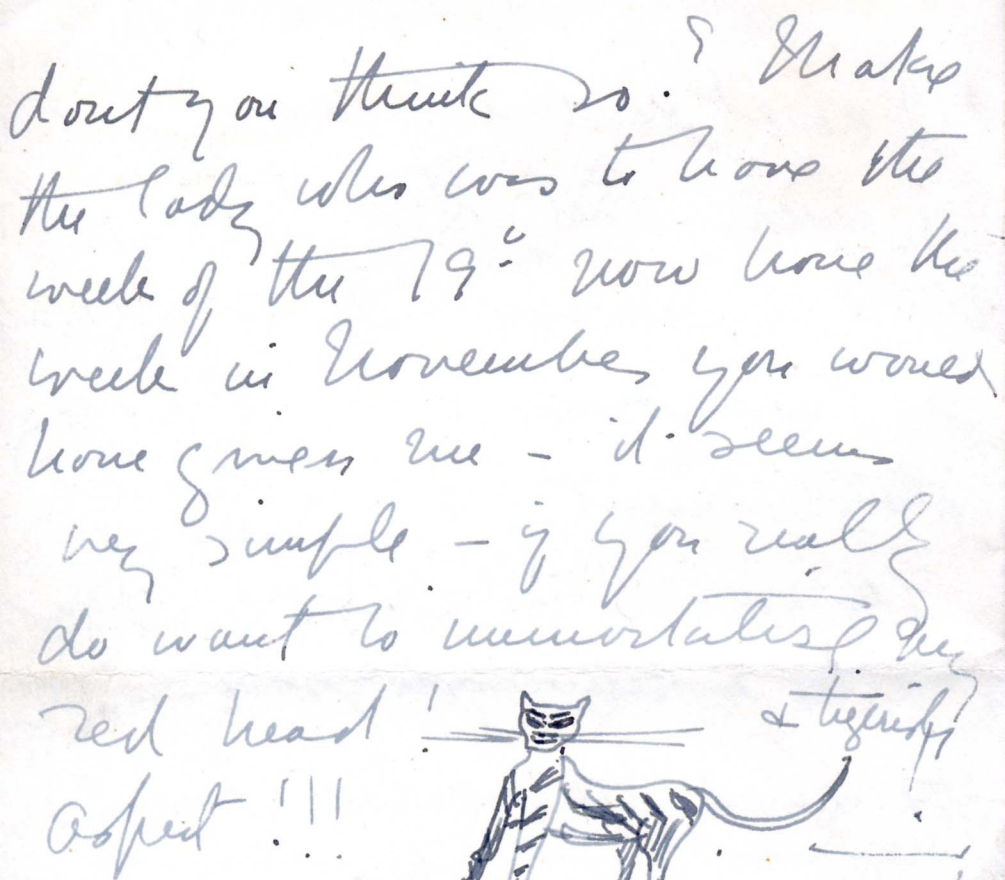 dont you think so? Make
the lady who was to have the
week of the 19th now have the
week in November you would
have given me – it seems
very simple – if you really
do want to immortalise my
red head! & tigerish
aspect!!!